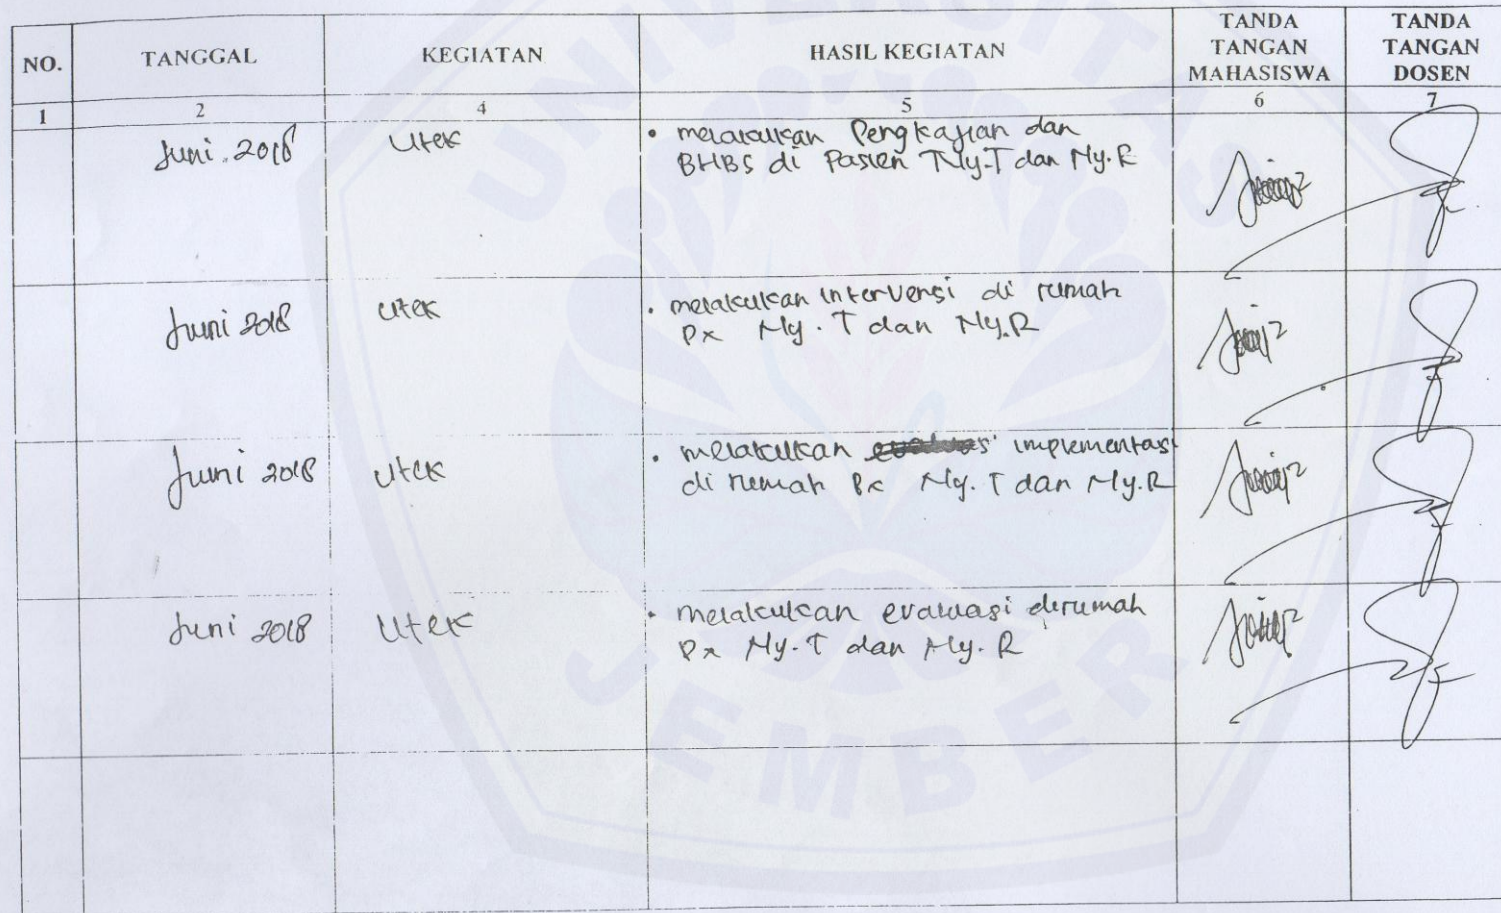 NO. TANGGAL KEGIATAN HASIL KEGIATAN TANDA TANGAN MAHASISWA TANDA TANGAN DOSEN
1 2 4 5 6 7
Juni 2018 Utek • melakukan Pengkajian dan
BHBS di Pasien Ny.T dan Ny.R
Juni 2018 Utek • melakukan intervensi di rumah
Px Ny.T dan Ny.R
Juni 2018 Utek • melakukan implementasi
di rumah Px Ny.T dan Ny.R
Juni 2018 Utek • melakukan evaluasi dirumah
Px Ny.T dan Ny.R
UNIVERSITAS
JEMBER